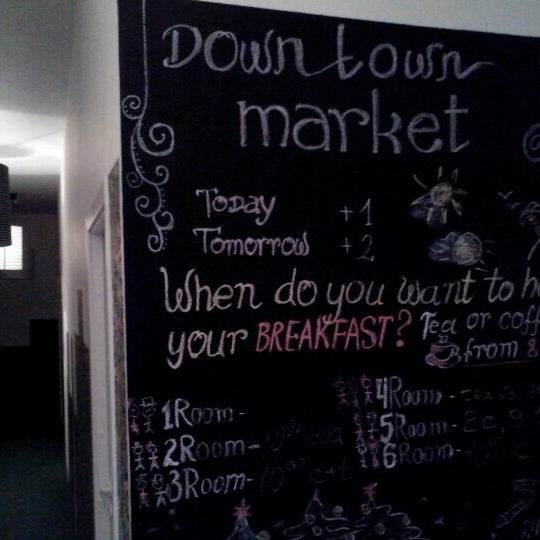 Downtown
market
Today +1
Tomorrow +2
When do you want to h
your BREAKFAST? Tea or coff
from 8
1Room-
2Room-
3Room-
4Room-
5Room-
6Room-